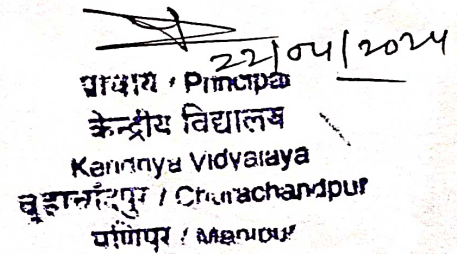 22/04/2024
प्राचार्य / Principal
केन्द्रीय विद्यालय
Kendriya Vidyalaya
चूड़ाचाँदपुर / Churachandpur
मणिपुर / Manipur